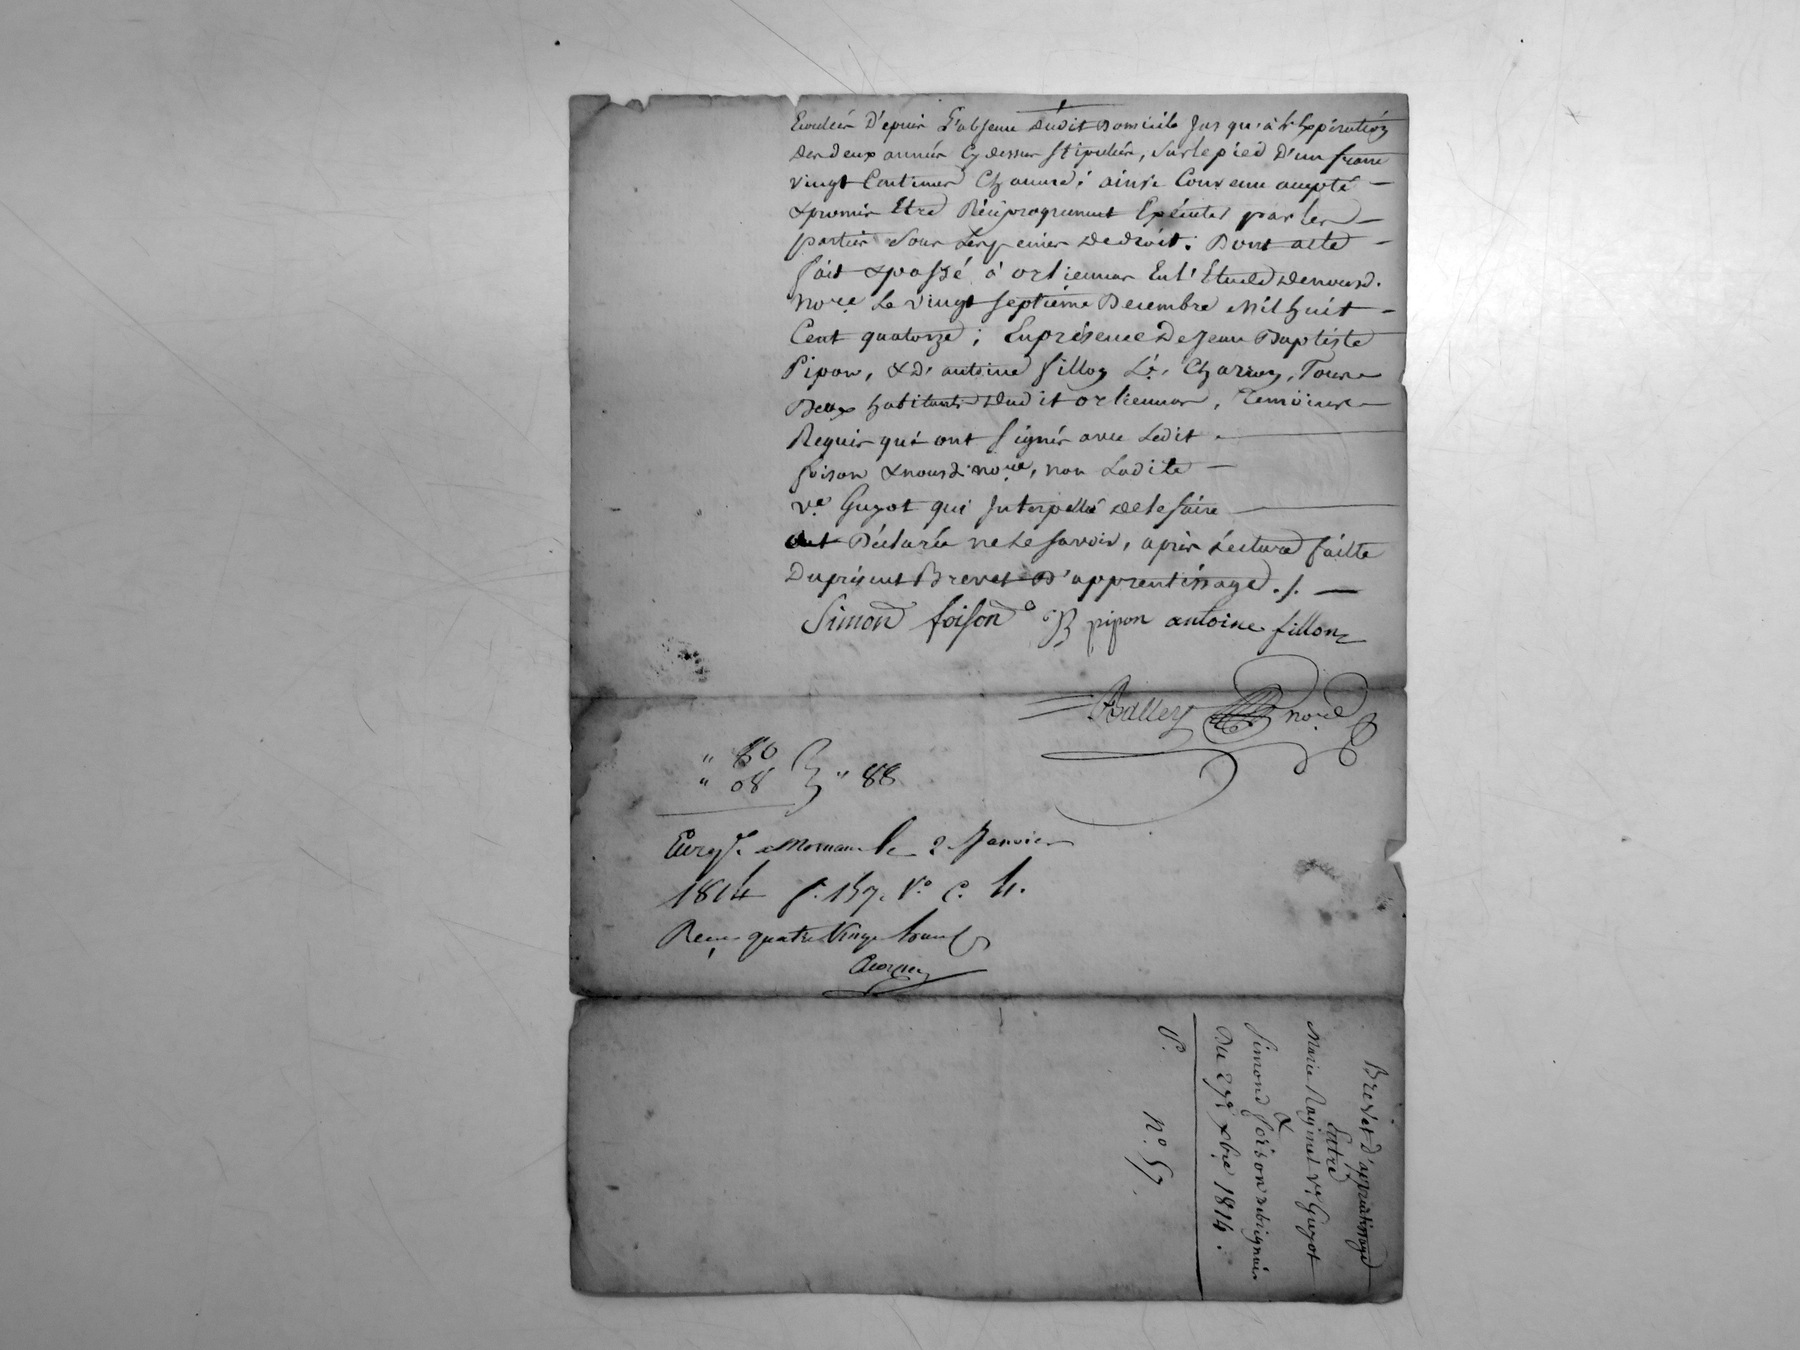 Ecoulées D'epuis L'absence dudit Domicile Jusqu'à L'Expiration
des deux années Cy dessus stipulées, sur le pied D'un franc
vingt Centimes Chacune; ainsi Convenu accepté —
& promis Etre Réciproquement Exécuté par les —
parties sous Les peines de droit. Dont acte —
fait & passé à orliennas En L'Etude de nousd.
nore Le vingt septième Decembre Mil huit —
Cent quatorze; En présence De Jean Baptiste
Pipon, & D'antoine fillon Charron, Tous
Deux habitants dudit orliennas, Temoins
Requis qui ont signés avec Ledit —
foison & nousd. nore, non Ladite —
ve Guyot qui Interpellé de le faire —
ont Déclarée ne Le savoir, après Lecture faitte
Du présent Brevet D'apprentissage ./. —
Simond foison JB pipon antoine fillon
Ralley nore
" 80
" 08 } " 88
Enrgé. à Mornant le 2 Janvier
1814 f. 157. Vo. C. 4.
Reçu quatre Vingt huit c
Brevet d'apprentissage
Entre
Marie Raynal ve Guyot
&
Simond foison
Du 27e xbre 1814.
No. 57.